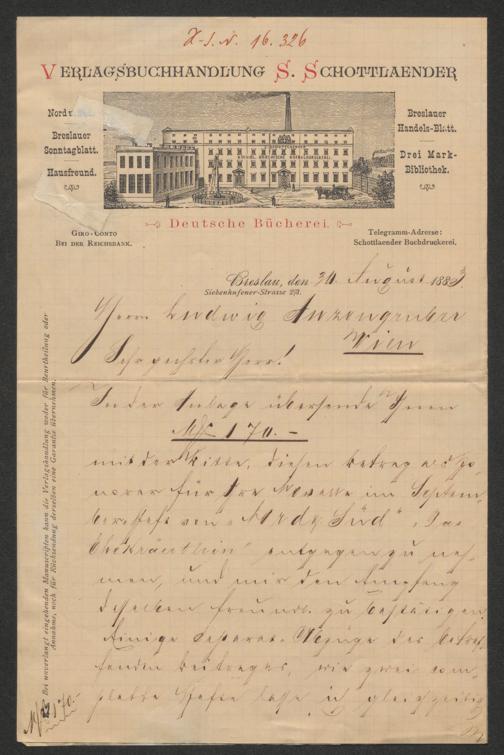 H.-I.-N. 16.326
VERLAGSBUCHHANDLUNG S. SCHOTTLAENDER
Nord
Breslauer
Sonntagblatt.
Hausfreund.
Breslauer
Handels-Blatt.
Drei Mark-
Bibliothek.
Deutsche Bücherei.
GIRO-CONTO
BEI DER REICHSBANK.
Telegramm-Adresse:
Schottlaender Buchdruckerei.
Breslau, den 30. August 1883.
Siebenhufener-Strasse 2/3.
Herrn Ludwig Anzengruber
Wien
Sehr geehrter Herr!
In der Anlage übersende Ihnen
M 170.-
mit der Bitte, diesen Betrag als Ho
norar für Ihre Novelle im Septem
berheft von „Nord & Süd“ „Das
entgegen zu neh-
men, und mir den Empfang
desselben freundl. zu bestätigen.
Einige Separat-Abzüge des betref
fenden Beitrages, wie zwei com-
plette Hefte lasse ich gleichzeitig
M 170.-
Bei unverlangt eingehenden Manuscripten kann die Verlagshandlung weder für Beurtheilung oder
Annahme, noch für Rücksendung derselben eine Garantie übernehmen.